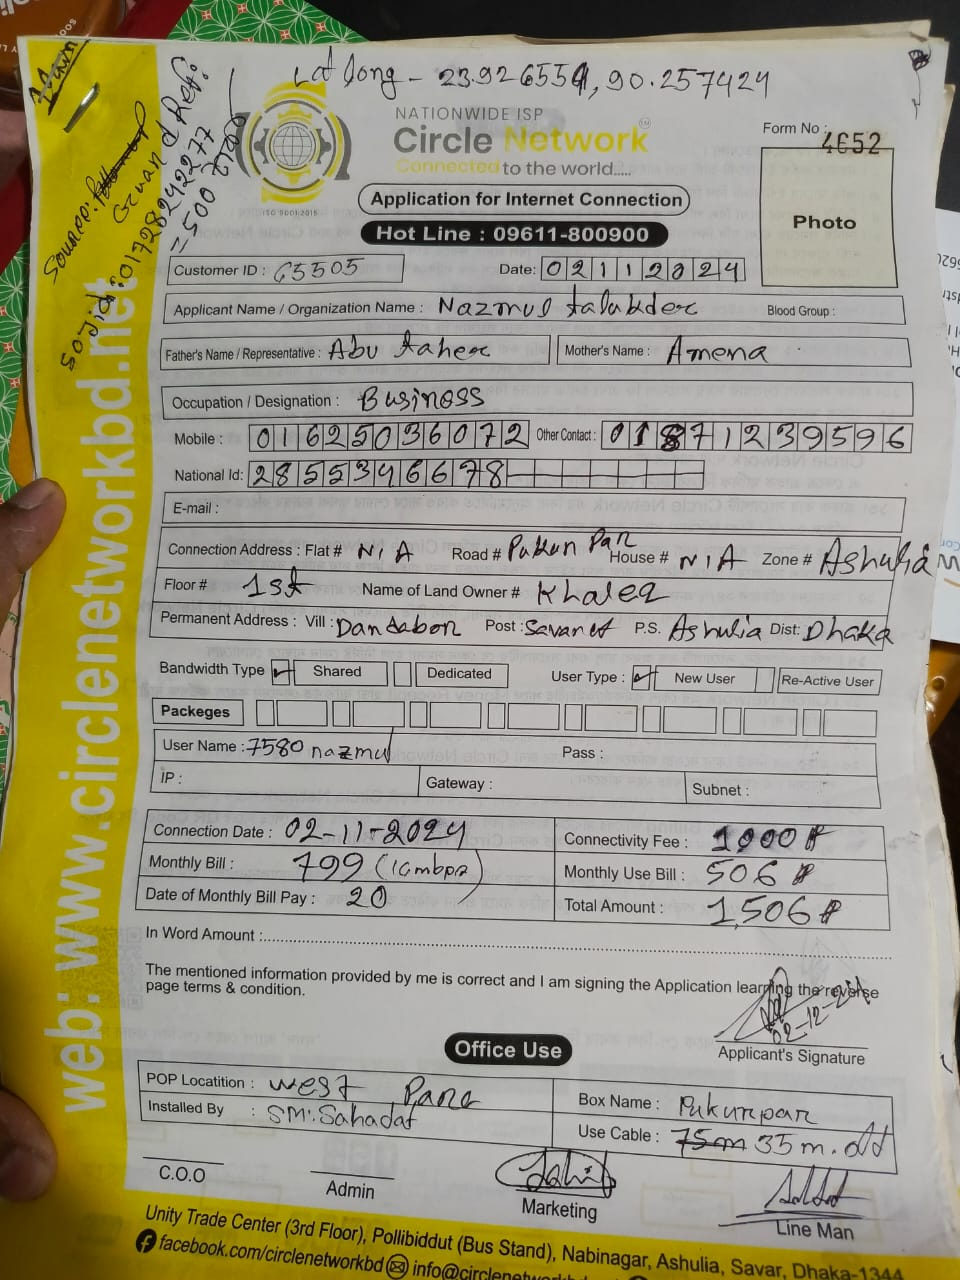 Lat long - 23.926554, 90.257424
NATIONWIDE ISP
Circle Network
Connected to the world.....
ISO 9001:2015
Form No : 4652
Photo
Application for Internet Connection
Hot Line : 09611-800900
Source:
01728242277
= 500
Customer ID : 65505
Date: 02112024
Applicant Name / Organization Name : Nazmul talukder Blood Group :
Father's Name / Representative : Abu taher Mother's Name : Amena
Occupation / Designation : Business
Mobile : 01625036072 Other Contact : 01871239596
National Id: 2855346678
E-mail :
Connection Address : Flat# N/A Road # Pukur Par House # N/A Zone # Ashulia
Floor # 1st Name of Land Owner # Khaleq
Permanent Address : Vill : Dandabor Post : Savar P.S. Ashulia Dist: Dhaka
Bandwidth Type ✓ Shared Dedicated User Type : ✓ New User Re-Active User
Packeges
User Name : 7580 nazmul Pass :
IP : Gateway : Subnet :
Connection Date : 02-11-2024 Connectivity Fee : 1000
Monthly Bill : 799 Monthly Use Bill : 506
Date of Monthly Bill Pay : 20 Total Amount : 1,506
In Word Amount :
The mentioned information provided by me is correct and I am signing the Application learning the reverse
page terms & condition.
02-12-24
Applicant's Signature
Office Use
POP Locatition : west Para Box Name : Pukurpar
Installed By : SM. Sahadat Use Cable : 75m 35 m. old
C.O.O Admin Marketing Line Man
Unity Trade Center (3rd Floor), Pollibiddut (Bus Stand), Nabinagar, Ashulia, Savar, Dhaka-1344
facebook.com/circlenetworkbd
web: www.circlenetworkbd.net